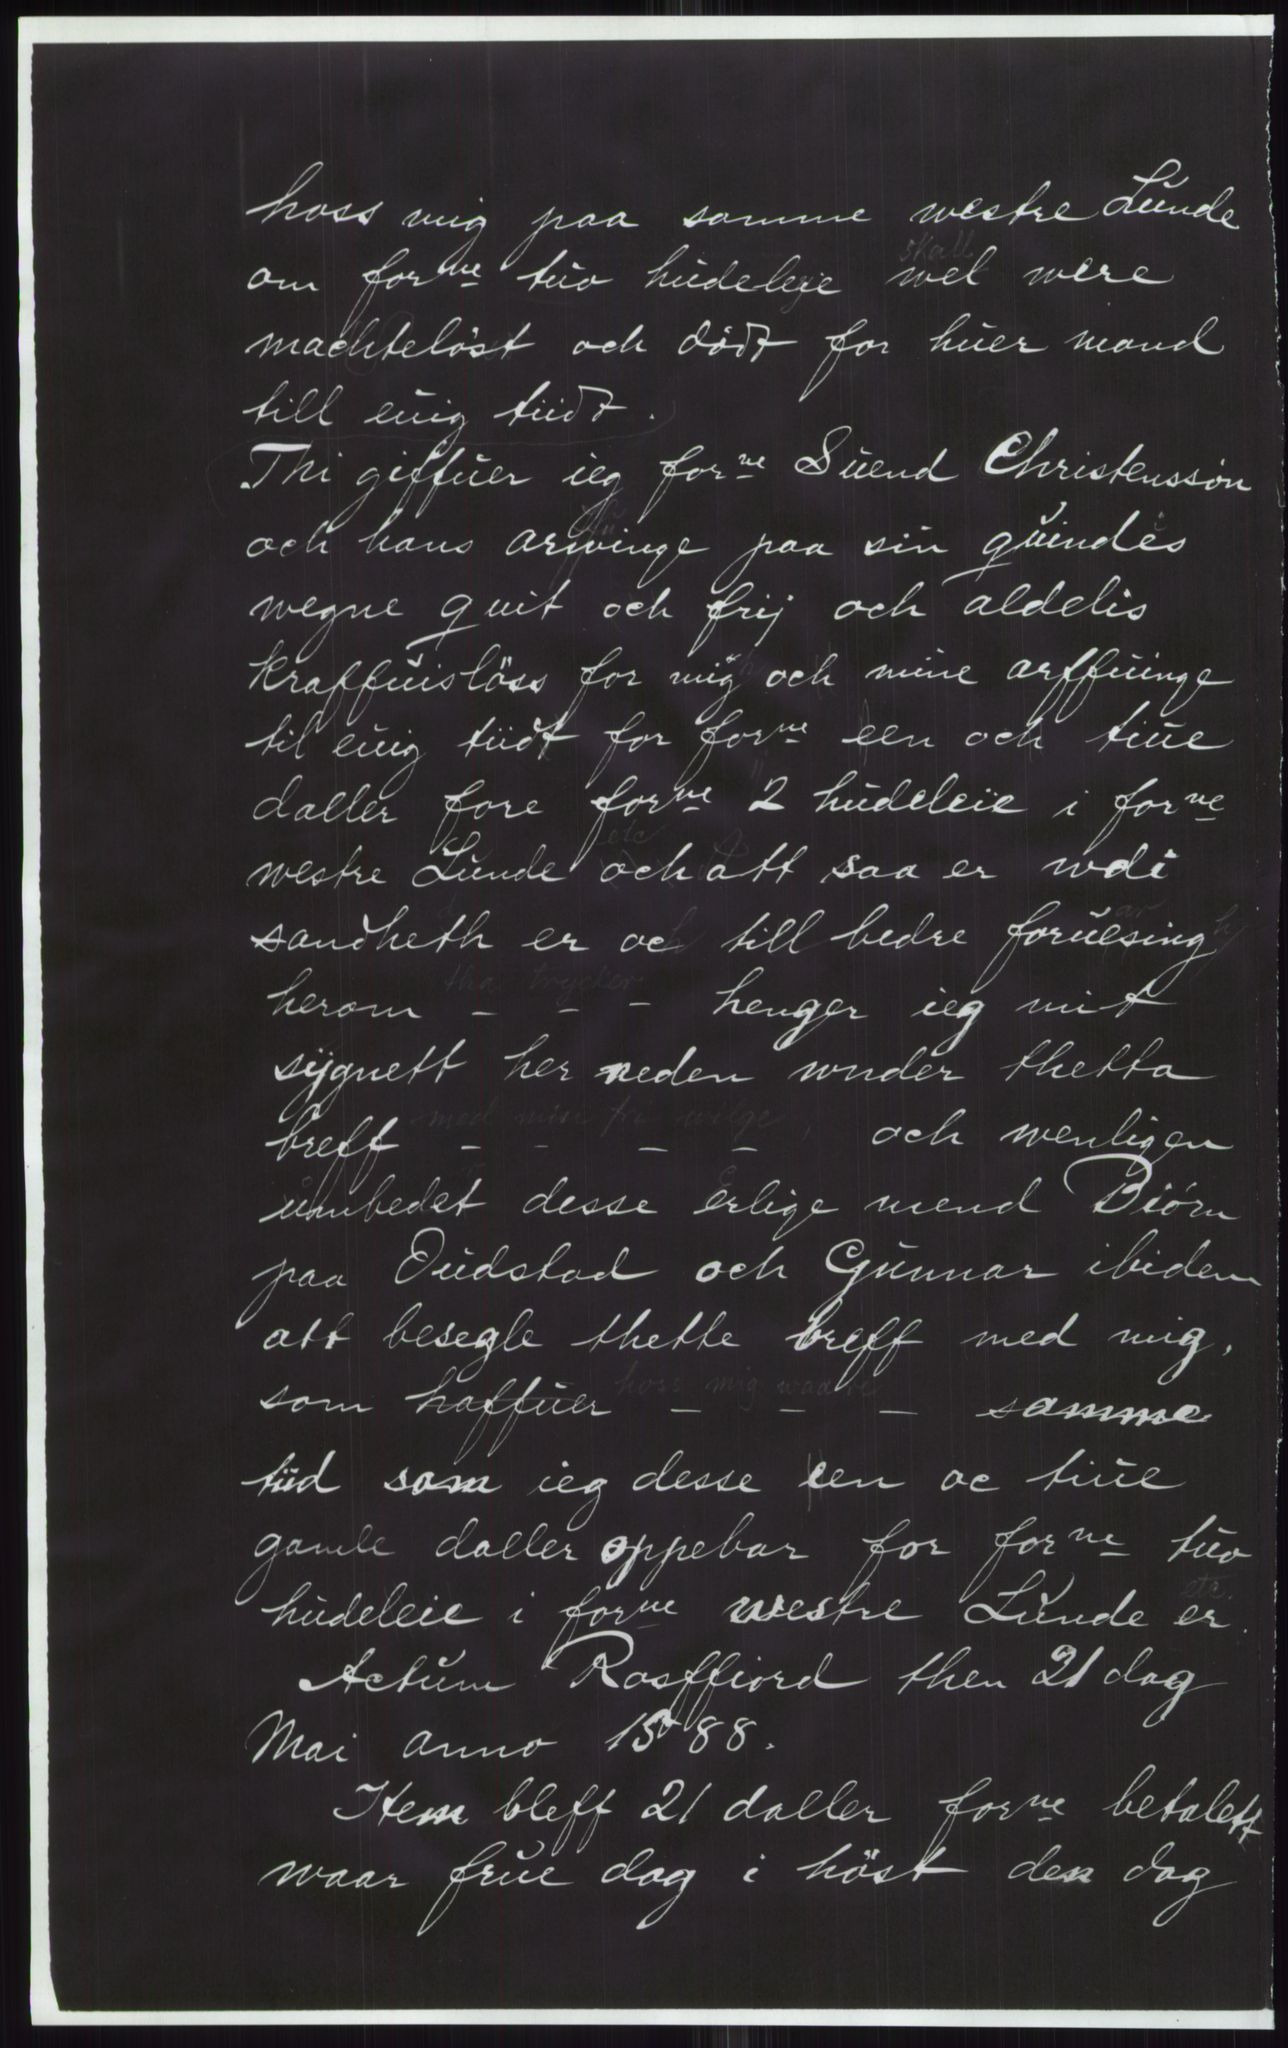 hoss mig paa samme westre Lunde
skall
om forne tuo hudeleie wel were
machteløst och dødt for huer mand
till euig tiidt.
Thi giffuer ieg forne Suend Christenssøn
och hans arwinge paa sin quindes
wegne quit och frij och aldelis
kraffuisløss for mig och mine arffuinge
til euig tiidt for forne een och tiue
daller fore forne 2 hudeleie i forne
etc
westre Lunde och att saa er wdi
sandheth er och till bedre foruesing
tha trycker
herom - - - henger ieg mit
sijgnett her neden wnder thetta
med min fri wilge,
breff - - - - och wenligen
umbedet desse erlige mend Biörn
paa Oudstad och Gunnar ibidem
att besegle thette breff med mig,
hoss mig waare
som haffuer - - - samme
tiid som ieg desse een oc tiue
gamle daller oppebar for forne tuo
etc.
hudeleie i forne westre Lunde er.
Actum Rosffiord then 21 dag
Mai anno 1588.
Item bleff 21 daller forne betalett
waar frue dag i höst den dag